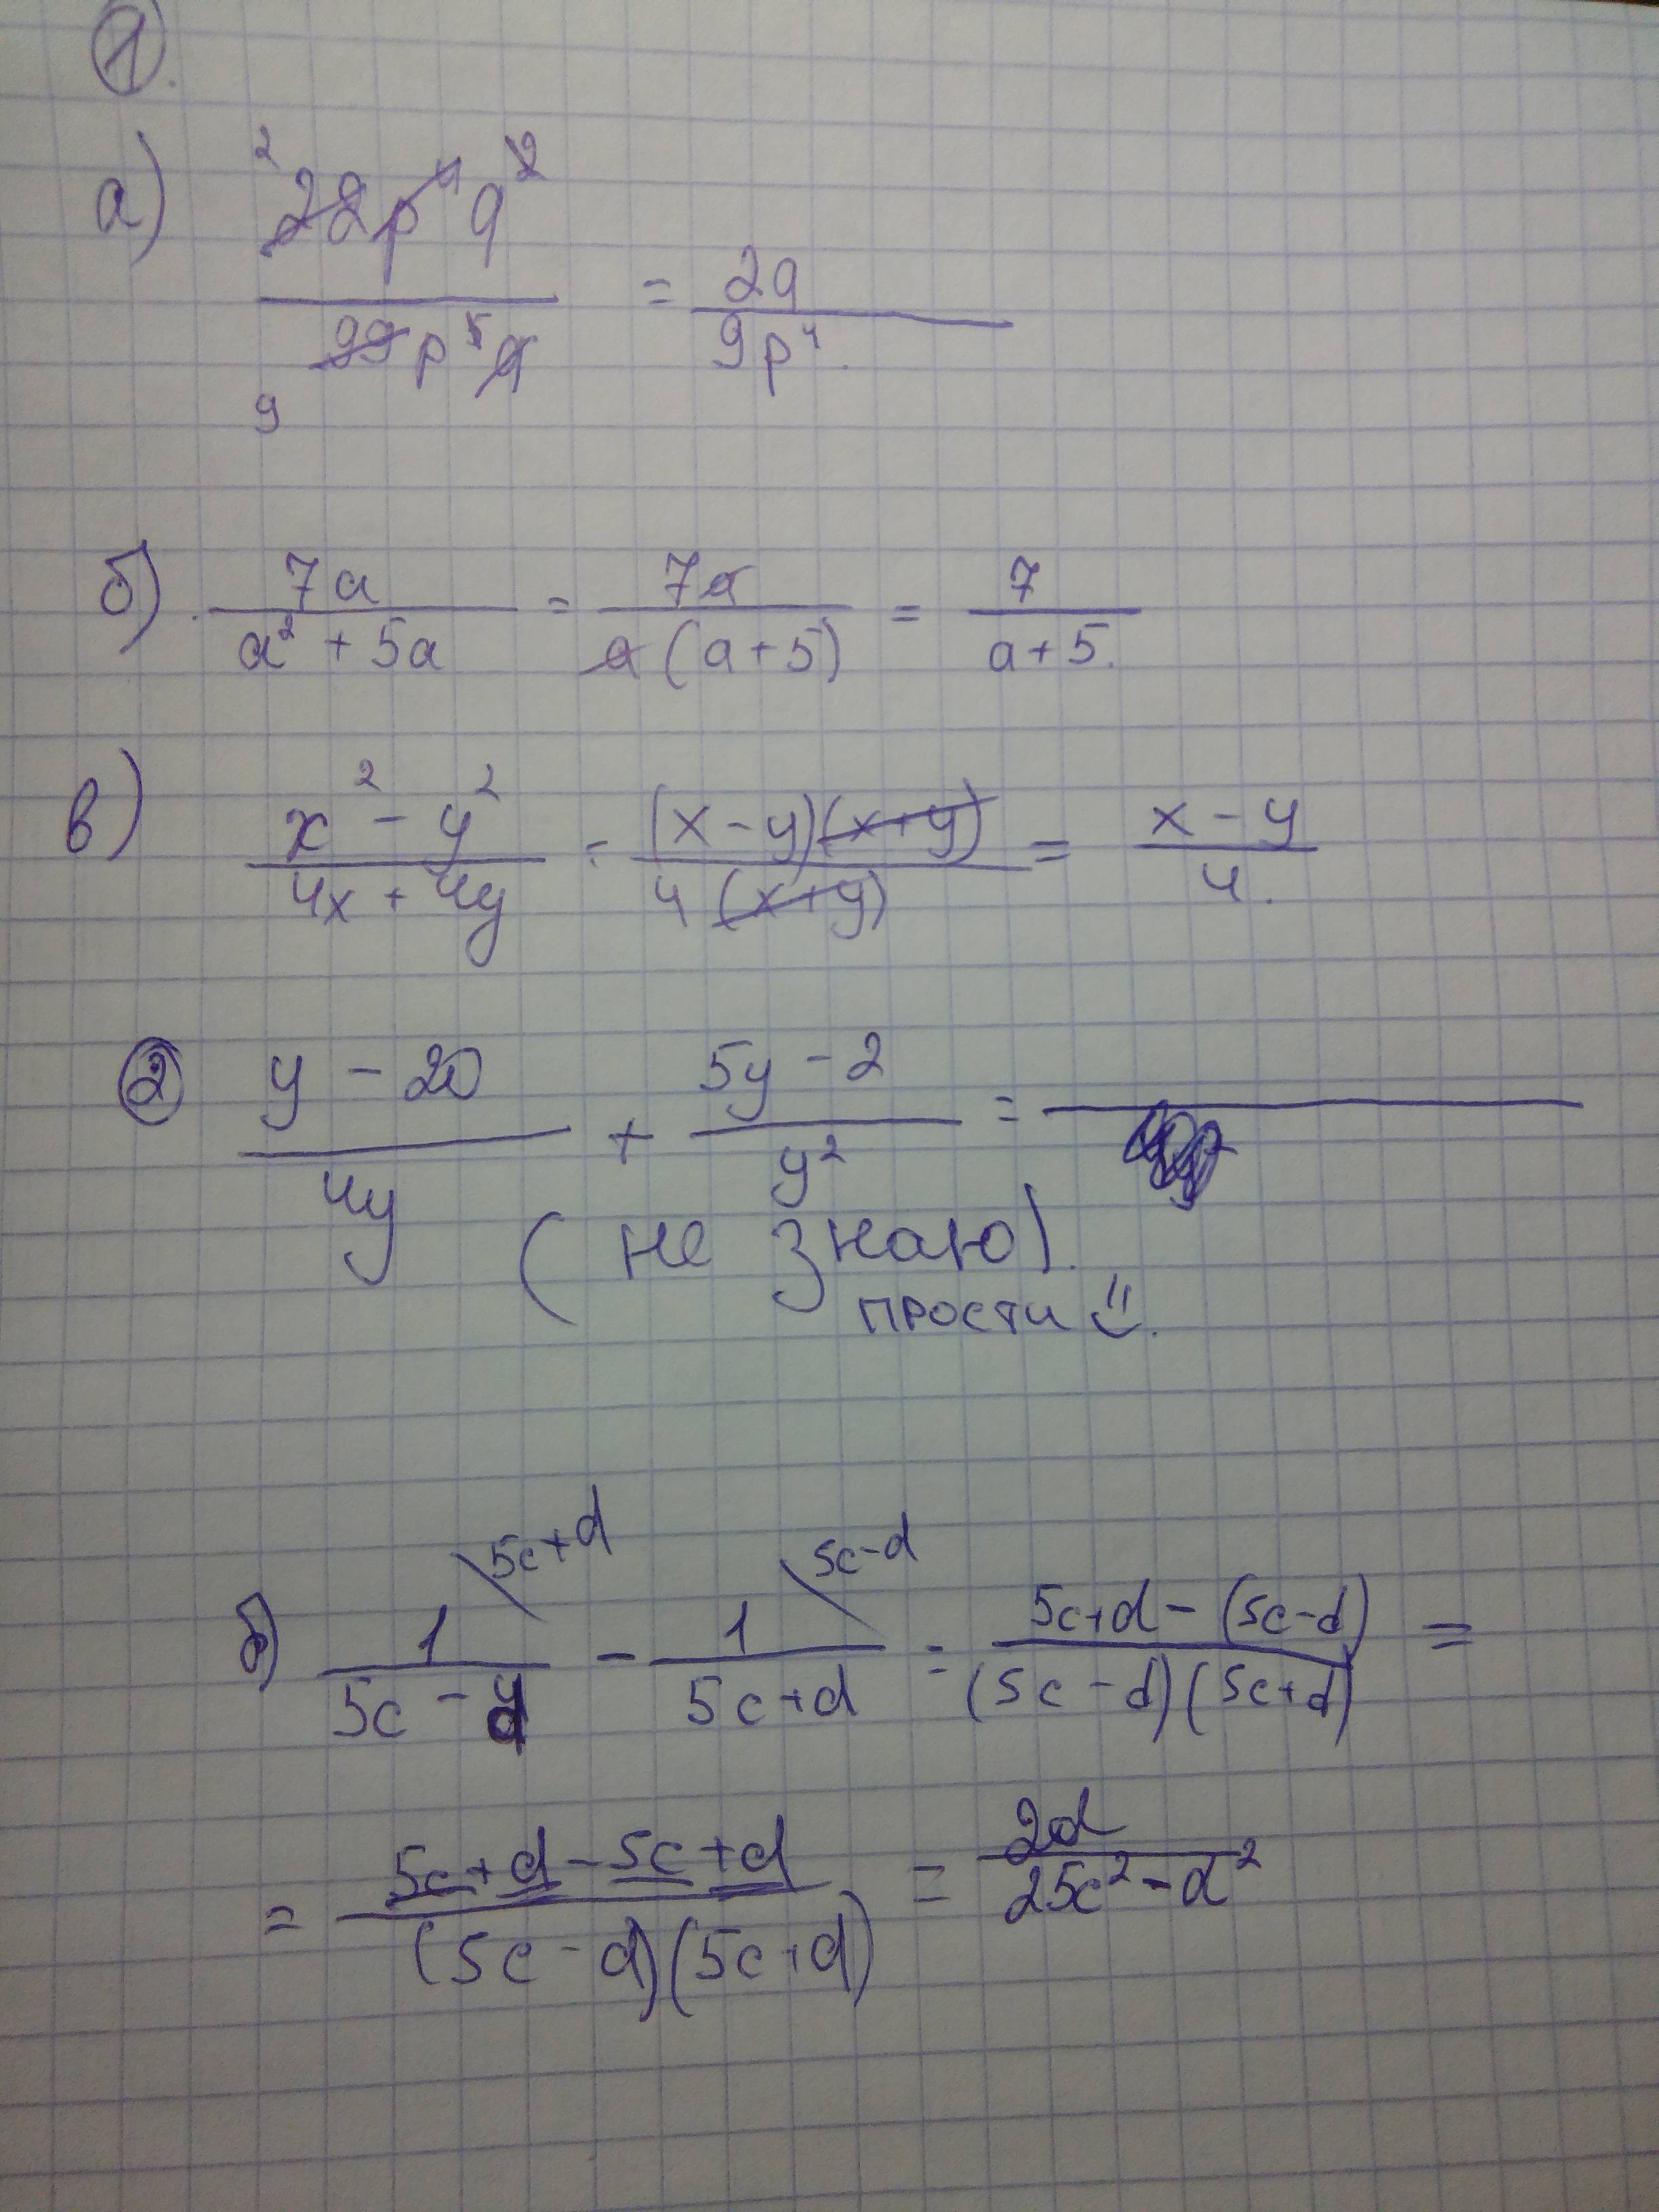 1.
а) 22p⁴q² / 99p⁵q = 2q / 9p⁴.
2
9
б) 7a / a² + 5a = 7a / a(a+5) = 7 / a+5.
в) x² - y² / 4x + 4y = (x-y)(x+y) / 4(x+y) = x-y / 4.
2 y - 20 / 4y + 5y - 2 / y² =
(не знаю).
прости
5c+d 5c-d
б) 1 / 5c - d - 1 / 5c+d = 5c+d-(5c-d) / (5c-d)(5c+d) =
= 5c+d-5c+d / (5c-d)(5c+d) = 2d / 25c²-d²